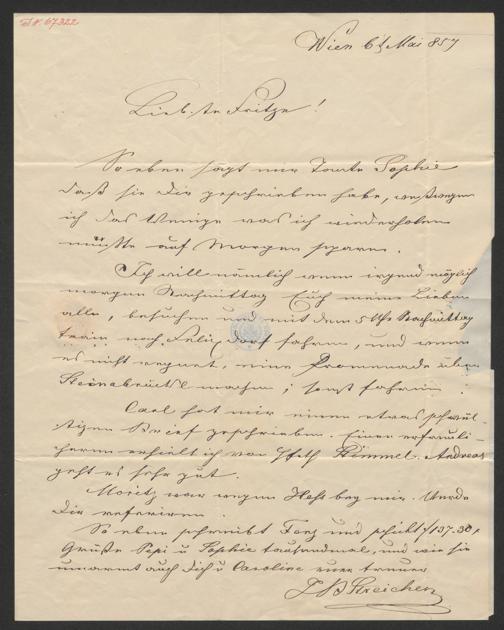 I.N. 67.322
Wien 6t Mai 857
Liebste Fritze!
So eben sagt mir Tante Sophie
daß sie Dir geschrieben habe, weßwegen
ich das Wenige was ich wiederholen
müßte auf Morgen spare.
Ich will nämlich wenn irgend möglich
morgen Nachmittag Euch meine Lieben
alle, besuchen und mit dem 5 Uhr Nachmittag
train nach fahren, und wenn
es nicht regnet, eine Promenade über
machen; sonst fahren
Carl hat mir einen etwas schwül-
stigen Brief geschrieben. Einen erfreuli-
cheren erhielt ich von Himmel. Andreas
geht es sehr gut.
Moritz war wegen bey mir. Werde
Dir referiren.
So eben schreibt und schickt f 137.30
Grüße Pepi u Sophie tausendmal, und wie sie
umarmt auch Dich u Caroline euer treuer
J B Streicher